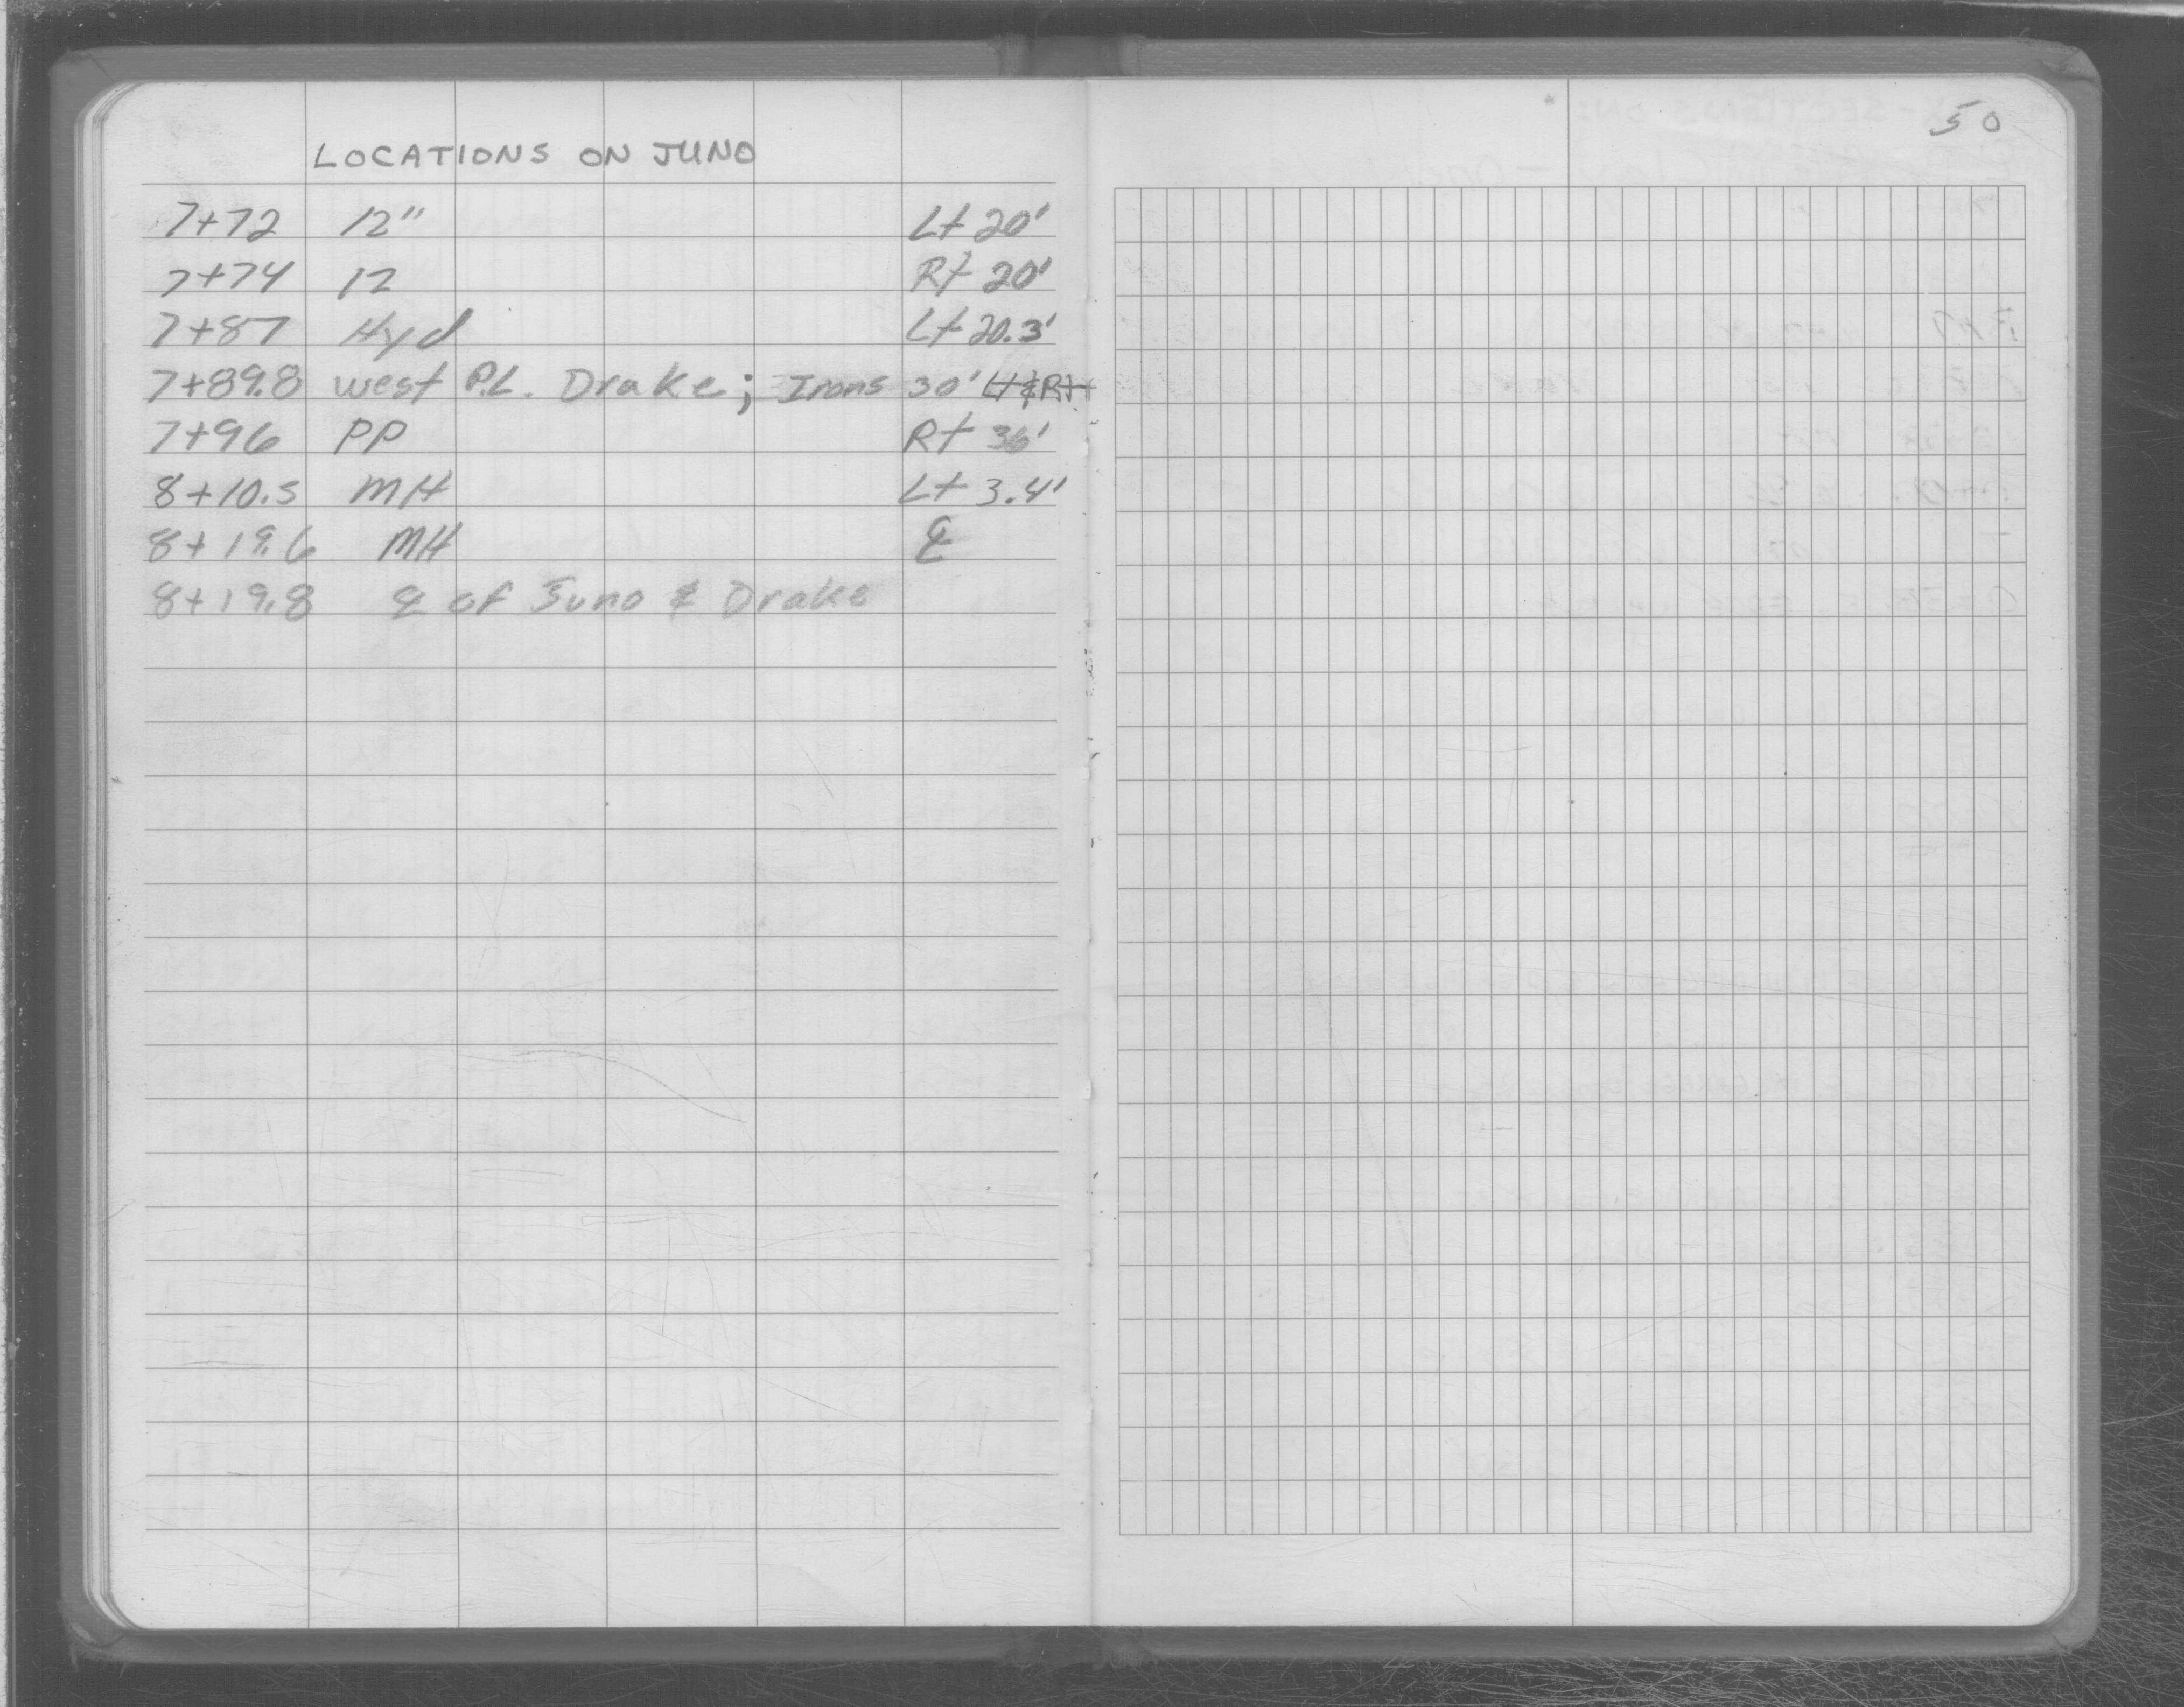 LOCATIONS ON JUNO
7+72 12" Lt 20'
7+74 12 Rt 20'
7+87 Hyd Lt 20.3'
7+89.8 west P.L. Drake; Irons 30' Lt & Rt
7+96 PP Rt 36'
8+10.5 MH Lt 3.4'
8+19.6 MH ℄
8+19.8 ℄ of Juno & Drake
50